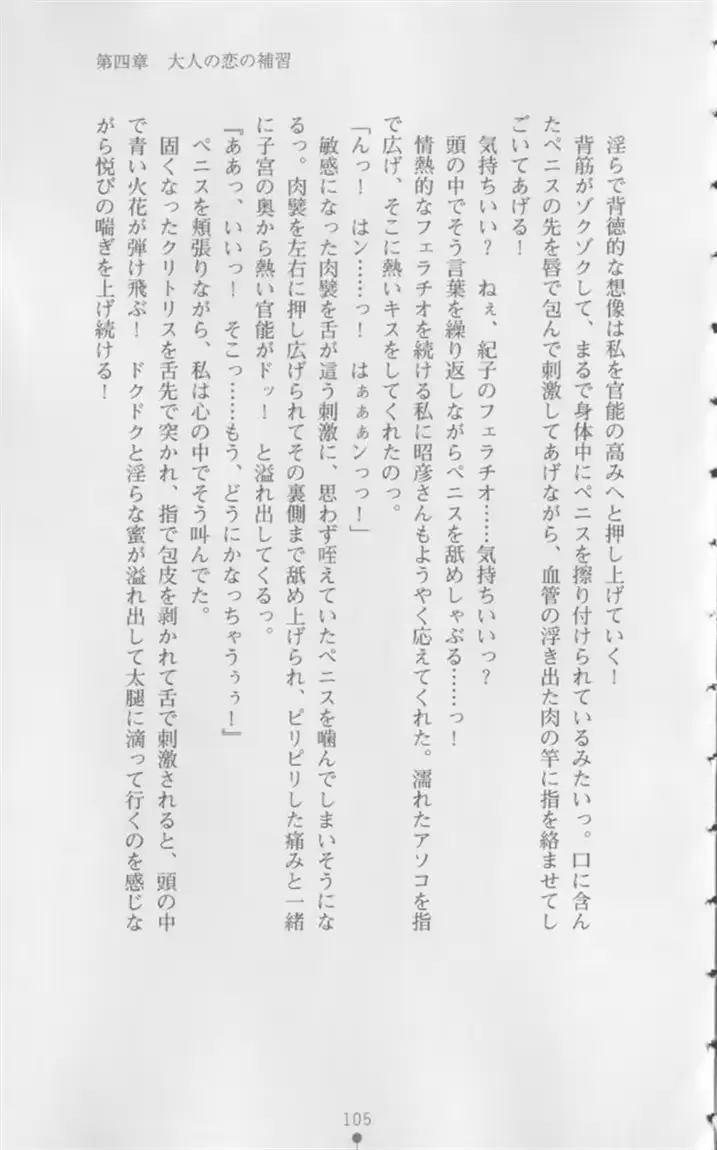 第四章　大人の恋の補習
　淫らで背徳的な想像は私を官能の高みへと押し上げていく！
　背筋がゾクゾクして、まるで身体中にペニスを擦り付けられているみたいっ。口に含ん
だペニスの先を唇で包んで刺激してあげながら、血管の浮き出た肉の竿に指を絡ませてし
ごいてあげる！
　気持ちいい？　ねぇ、紀子のフェラチオ……気持ちいいっ？
　頭の中でそう言葉を繰り返しながらペニスを舐めしゃぶる……っ！
　情熱的なフェラチオを続ける私に昭彦さんもようやく応えてくれた。濡れたアソコを指
で広げ、そこに熱いキスをしてくれたのっ。
「んっ！　はン……っ！　はぁぁぁンっっ！」
　敏感になった肉襞を舌が這う刺激に、思わず咥えていたペニスを噛んでしまいそうにな
るっ。肉襞を左右に押し広げられてその裏側まで舐め上げられ、ピリピリした痛みと一緒
に子宮の奥から熱い官能がドッ！　と溢れ出してくるっ。
『ああっ、いいっ！　そこっ……もう、どうにかなっちゃうぅぅ！』
　ペニスを頬張りながら、私は心の中でそう叫んでた。
　固くなったクリトリスを舌先で突かれ、指で包皮を剥かれて舌で刺激されると、頭の中
で青い火花が弾け飛ぶ！　ドクドクと淫らな蜜が溢れ出して太腿に滴って行くのを感じな
がら悦びの喘ぎを上げ続ける！
105